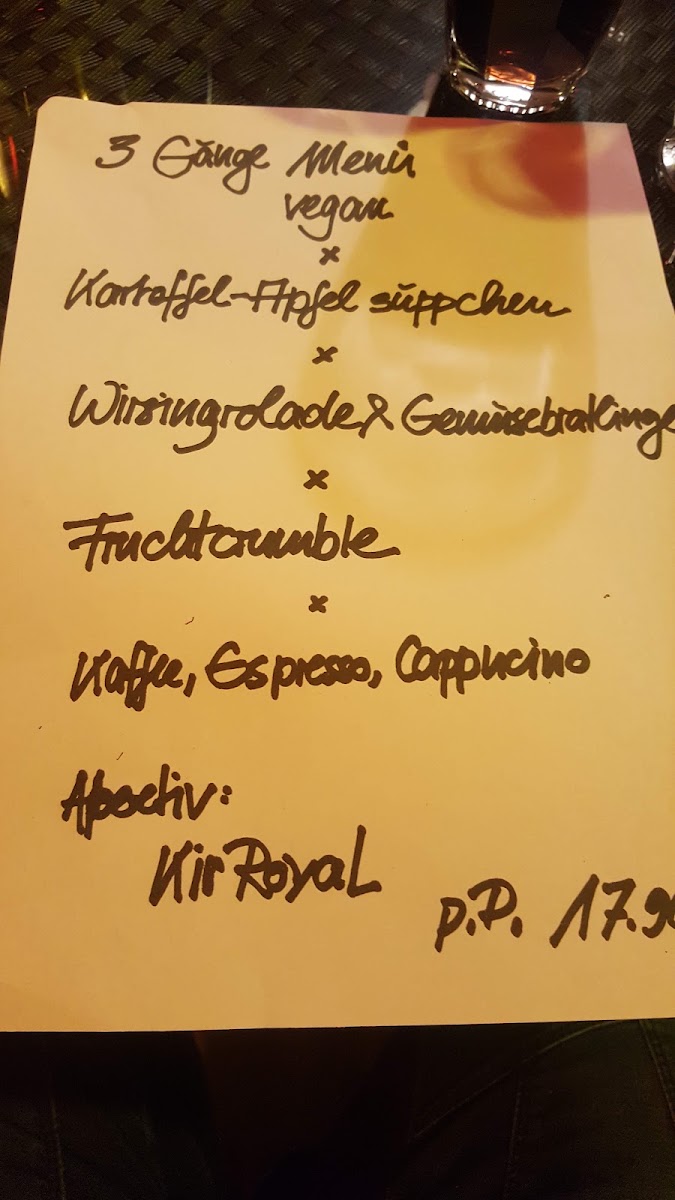 3 Gänge Menü
vegan
x
Kartoffel-Apfel süppchen
x
Wirsingrolade & Gemüsebratlinge
x
Fruchtcrumble
x
Kaffee, Espresso, Cappucino
Aperetiv:
Kir Royal
p.P. 17.90